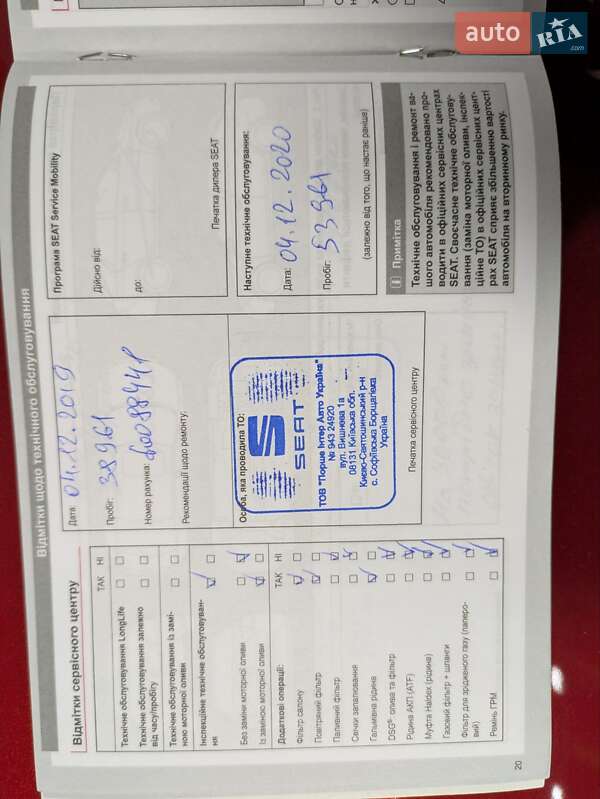 auto RIA.com
Відмітки щодо технічного обслуговування
Відмітки сервісного центру
ТАК НІ
Технічне обслуговування LongLife
Технічне обслуговування залежно
від часу/пробігу
Технічне обслуговування із замі-
ною моторної оливи
Інспекційне технічне обслуговуван-
ня
Без заміни моторної оливи
Із заміною моторної оливи
Додаткові операції: ТАК НІ
Фільтр салону
Повітряний фільтр
Паливний фільтр
Свічки запалювання
Гальмівна рідина
DSG® олива та фільтр
Рідина АКП (ATF)
Муфта Haldex (рідина)
Газовий фільтр + шланги
Фільтр для зрідженого газу (паперо-
вий)
Ремінь ГРМ
20
Дата: 04.12.2019
Пробіг: 38961
Номер рахунка:
Рекомендації щодо ремонту:
Особа, яка проводила ТО:
SEAT
ТОВ "Порше Інтер Авто Україна"
№ 943 24920
вул. Вишнева 1а
08131 Київська обл.
Києво-Святошинський р-н
с. Софіївська Борщагівка
Україна
Печатка сервісного центру
Програма SEAT Service Mobility
Дійсно від:
до:
Печатка дилера SEAT
Наступне технічне обслуговування:
Дата: 04.12.2020
Пробіг: 53961
(залежно від того, що настає раніше)
Примітка
Технічне обслуговування і ремонт ва-
шого автомобіля рекомендовано про-
водити в офіційних сервісних центрах
SEAT. Своєчасне технічне обслугову-
вання (заміна моторної оливи, інспек-
ційне ТО) в офіційних сервісних цент-
рах SEAT сприяє збільшенню вартості
автомобіля на вторинному ринку.